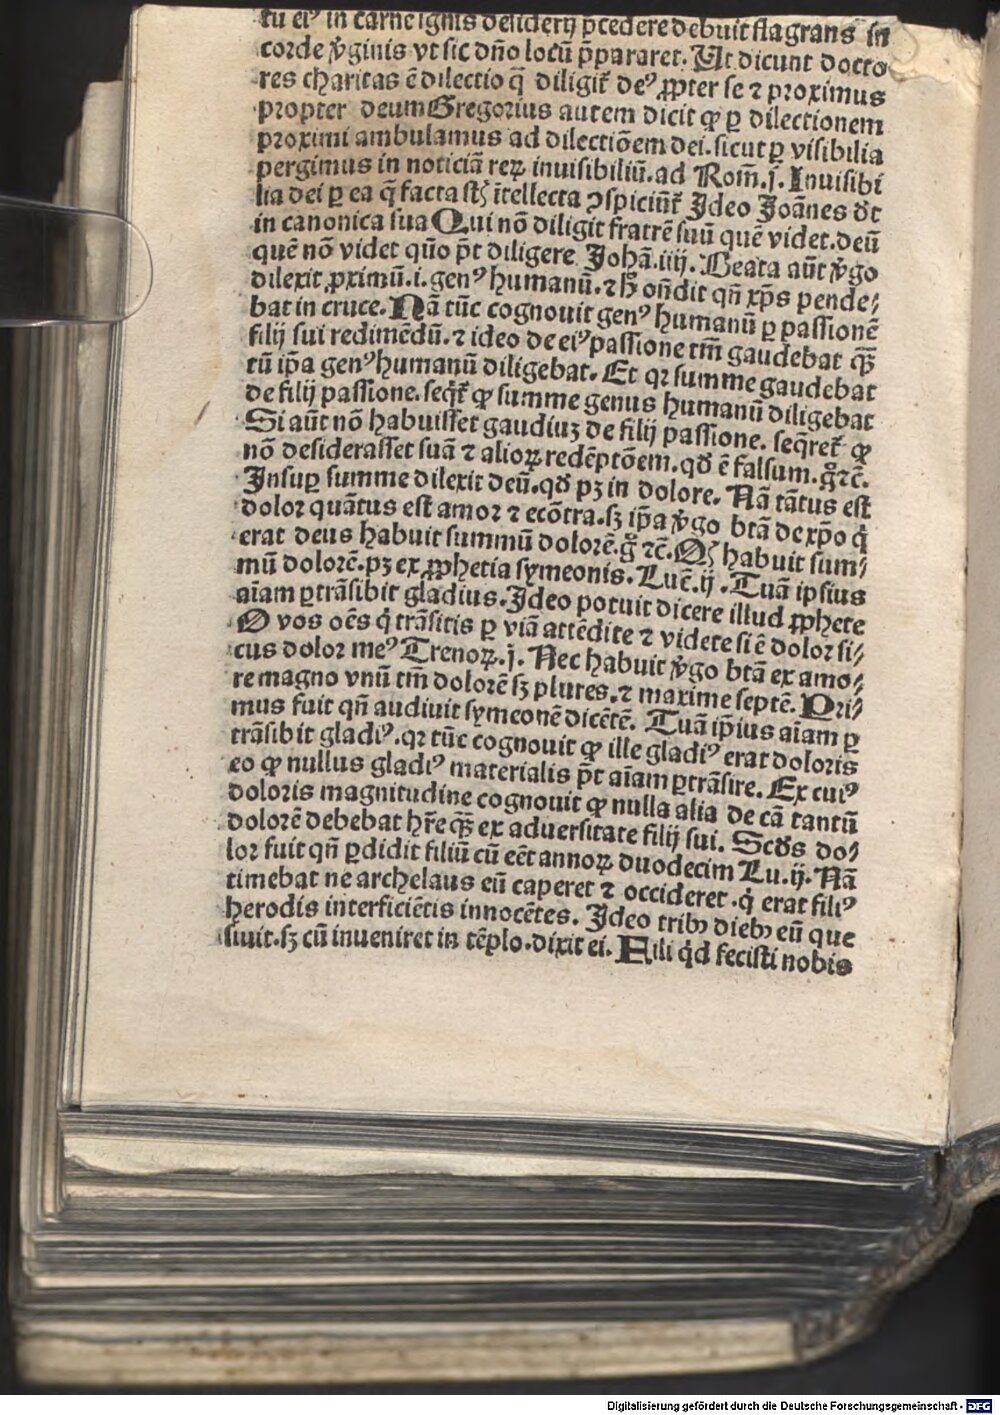 tu eiꝰ in carne ignis desiderij p̄cedere debuit flagrans in
corde v̓ginis vt sic dño locū p̄pararet. Ut dicunt docto
res charitas ē dilectio q̄ diligit̃ deꝰ ꝓpter se ⁊ proximus
propter deum Gregorius autem dicit ꝙ ꝑ dilectionem
proximi ambulamus ad dilectiōem dei. sicut ꝑ visibilia
pergimus in noticiā reꝝ inuisibiliū. ad Rom̄. j. Inuisibi
lia dei ꝑ ea q̄ facta st̄ ītellecta ꝯspiciūt̃ Ideo Joānes dt
in canonica sua Qui nō diligit fratrē suū quē videt. deū
quē nō videt quō p̄t diligere Johā. iiij. Beata aūt v̓go
dilexit ꝓximū. i. genꝰ humanū. ⁊ h̄ oñdit qñ xp̄s pende⸗
bat in cruce. Nā tūc cognouit genꝰ humanū ꝑ passionē
filij sui redimēdū. ⁊ ideo de eiꝰ passione tm̄ gaudebat qꝫ̄
tū ip̄a genꝰ humanū diligebat. Et qꝛ summe gaudebat
de filij passione. seq̄t̃ ꝙ summe genus humanū diligebat
Si aūt nō habuisset gaudiuꝫ de filij passione. seq̄ret̃ ꝙ
nō desiderasset suā ⁊ alioꝝ redēptōem. qd̓ ē falsum. g̊ ⁊c̄.
Insuꝑ summe dilexit deū. qd̓ pꝫ in dolore. Nā tātus est
dolor quātus est amor ⁊ ecōtra. sꝫ ip̄a v̓go btā de xp̄o q̇
erat deus habuit summū dolorē. g̊ ⁊c̄. Qꝫ habuit sum⸗
mū dolorē. pꝫ ex ꝓphetia symeonis. Luc̄. ij. Tuā ipsius
aīam ꝑtrāsibit gladius. Ideo potuit dicere illud ꝓphete
O vos oēs q̇ trāsitis ꝑ viā attēdite ⁊ videte si ē dolor si⸗
cus dolor meꝰ Trenoꝝ. j. Nec habuit v̓go btā ex amo⸗
re magno vnū tm̄ dolorē sꝫ plures. ⁊ maxime septē. Pri⸗
mus fuit qñ audiuit symeonē dicētē. Tuā ip̄ius aīam ꝑ
trāsibit gladiꝰ. qꝛ tūc cognouit ꝙ ille gladiꝰ erat doloris
eo ꝙ nullus gladiꝰ materialis p̄t aīam ꝑtrāsire. Ex cuiꝰ
doloris magnitudine cognouit ꝙ nulla alia de cā tantū
dolorē debebat hr̄e qꝫ̄ ex aduersitate filij sui. Scd̓s do⸗
lor fuit qñ ꝑdidit filiū cū eēt annoꝝ duodecim Lu. ij. Nā
timebat ne archelaus eū caperet ⁊ occideret. q̇ erat filiꝰ
herodis interficiētis innocētes. Ideo tribꝫ diebꝫ eū que
siuit. sꝫ cū inueniret in tēplo. dixit ei. Fili qd̓ fecisti nobis
Digitalisierung gefördert durch die Deutsche Forschungsgemeinschaft - DFG